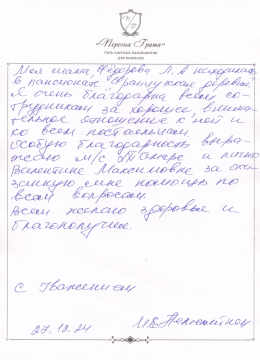 «Перевия Грата»
Сеть частных пансионатов
для пожилых
Моя мама, Фёдорова Л. А находилась
в пансионате "Французская деревня"
Я очень благодарна всем со-
трудникам за хорошее внима-
тельное отношение к ней и
ко всем постояльцам.
Особую благодарность выра-
жаю м/с Тамаре и лично
Валентине Максимовне за ока-
занную мне помощь по
всем вопросам.
Всем желаю здоровья и
благополучие.
С Уважением
27.12.24